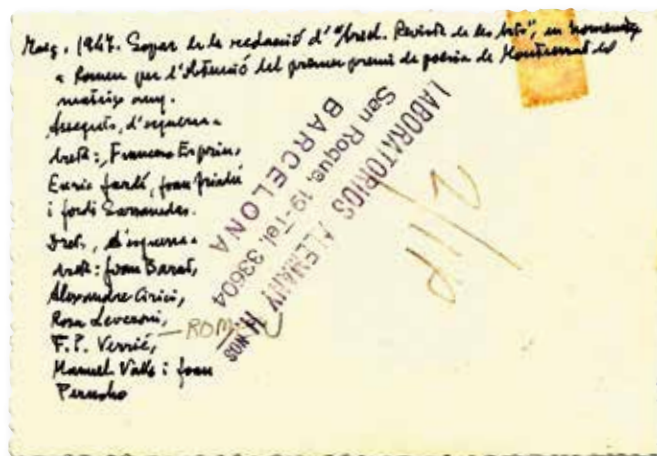 Maig, 1947. Sopar de la redacció d'"Ariel. Revista de les Arts", en homenatge
a Romeu per l'obtenció del primer premi de poesia de Montserrat del
mateix any.
Asseguts, d'esquerra a
dreta: Francesc Espriu,
Enric Jardí, Joan Triadú
i Jordi Sarsanedas.
Drets, d'esquerra a
dreta: Joan Barat,
Alexandre Cirici,
Rosa Leveroni,
F. P. Verrié,
Manuel Valls i Joan
Perucho
LABORATORIOS ALEMANY H-NOS
San Roque, 19-Tel. 33604
BARCELONA